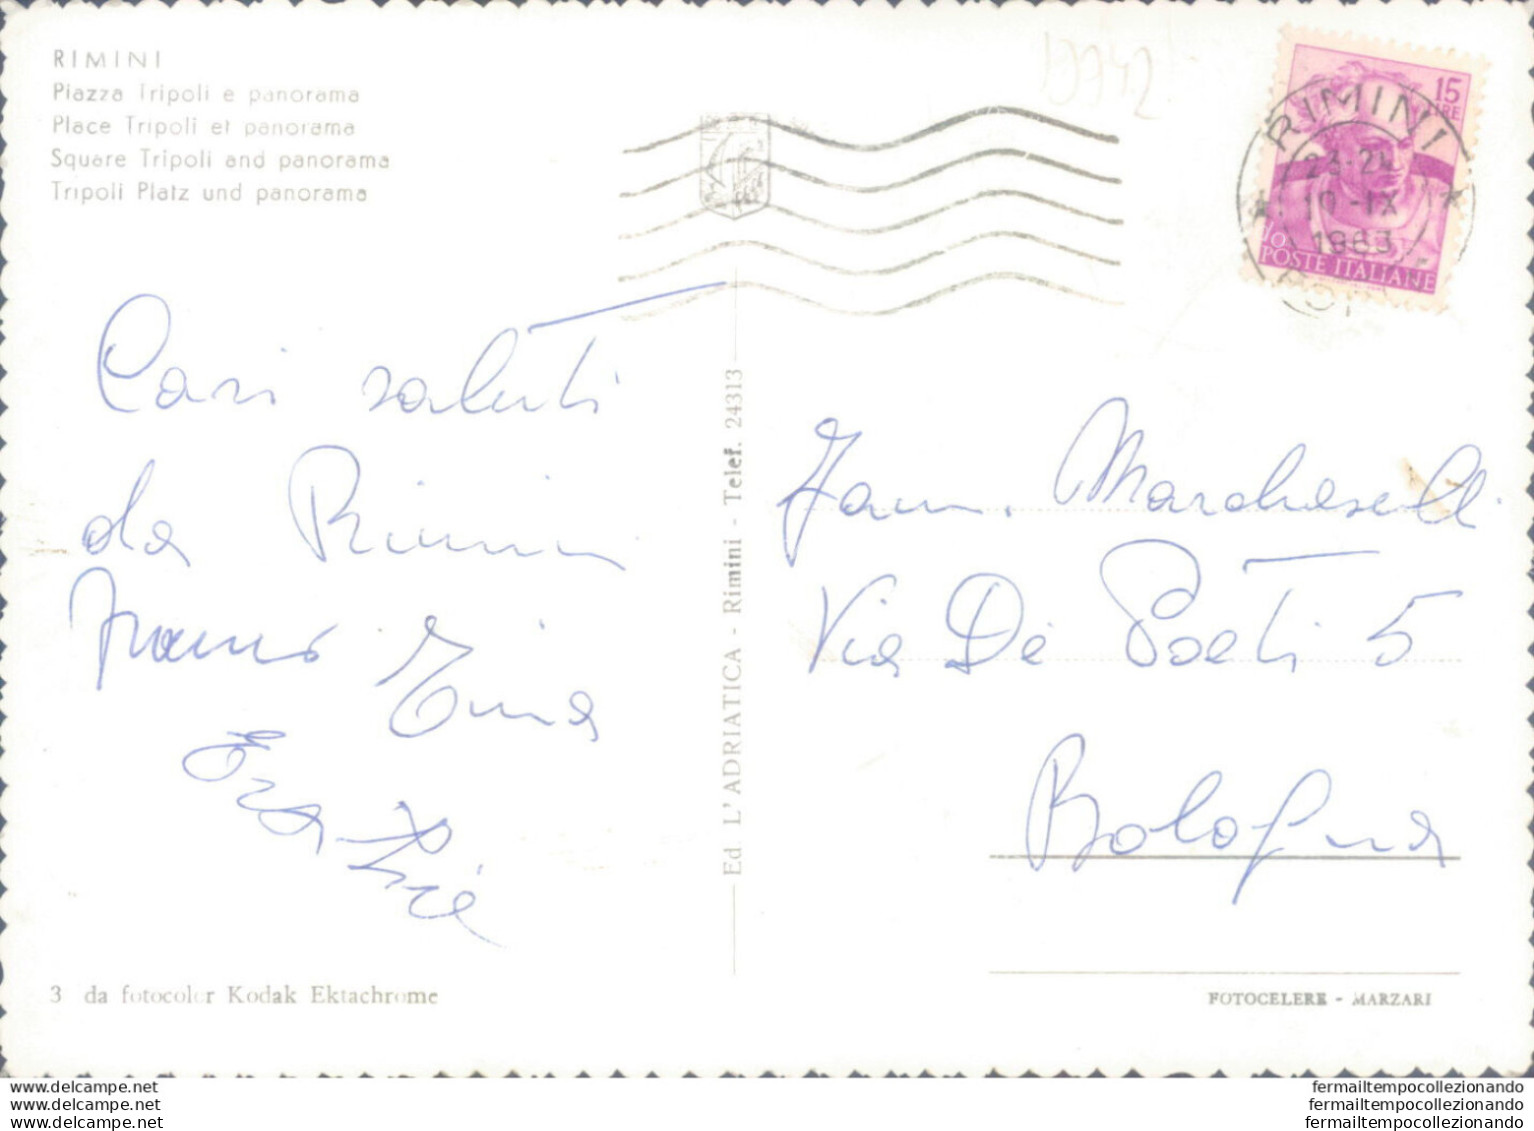 RIMINI
Piazza Tripoli e panorama
Place Tripoli et panorama
Square Tripoli and panorama
Tripoli Platz und panorama
15
LIRE
POSTE ITALIANE
RIMINI
23-24
10-IX
1963
Cari saluti
da Rimini
Franco Tina
Fam. Marcheselli
Via De Poeti 5
Bologna
Ed L'ADRIATICA - Rimini - Telef. 24313
3 da fotocolor Kodak Ektachrome
FOTOCELERE - MARZARI
delcampe.net
www.delcampe.net
www.delcampe.net
fermailtempocollezionando
fermailtempocollezionando
fermailtempocollezionando